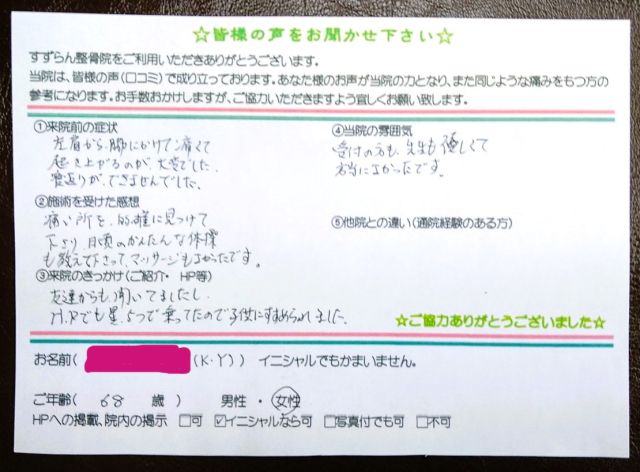 ☆皆様の声をお聞かせ下さい☆
すずらん整骨院をご利用いただきありがとうございます。
当院は、皆様の声(口コミ)で成り立っております。あなた様のお声が当院の力となり、また同じような痛みをもつ方の
参考になります。お手数おかけしますが、ご協力いただきますよう宜しくお願い致します。
①来院前の症状
左肩から腕にかけて痛くて
起き上がるのが大変でした。
寝返りができませんでした。
②施術を受けた感想
痛い所を、的確に見つけて
下さり、日頃のかんたんな体操
も教えて下さって、マッサージもよかったです。
③来院のきっかけ(ご紹介・ HP等)
友達からも、聞いてましたし、
H.Pでも星、5つで乗ってたので子供にすすめられました。
④当院の雰囲気
受付の方も、先生も優しくて
本当によかったです。
⑤他院との違い(通院経験のある方)
☆ご協力ありがとうございました☆
お名前( (K・Y)) イニシャルでもかまいません。
ご年齢( 68 歳 ) 男性 ・ 女性
HPへの掲載、院内の掲示 □可 ☑イニシャルなら可 □写真付でも可 □不可